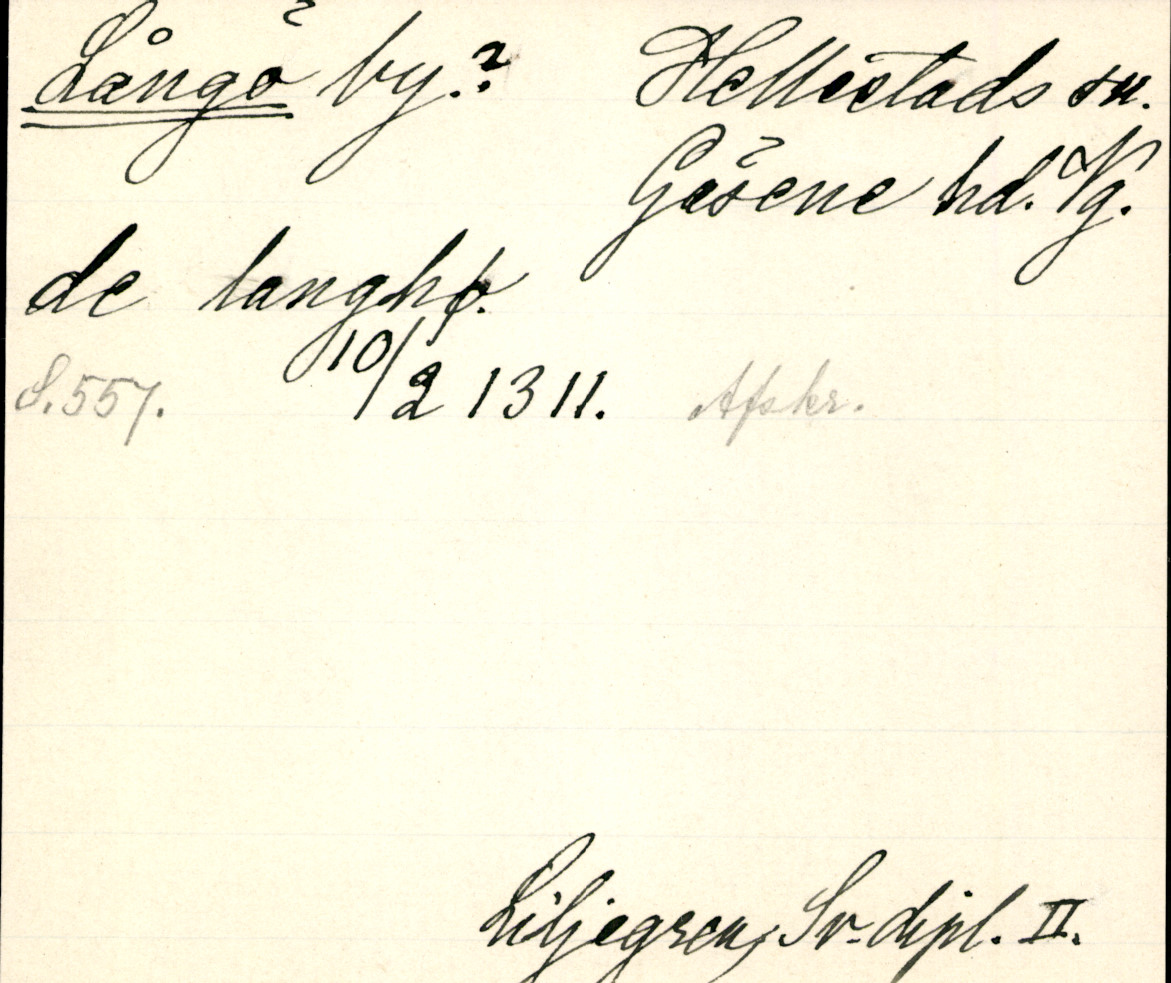 Långö by.? Hellestads sn.
Gäsene hd. Vg.
de langhø.
S. 557. 10/2 1311. Afskr.
Liljegren, Sv. dipl. II.